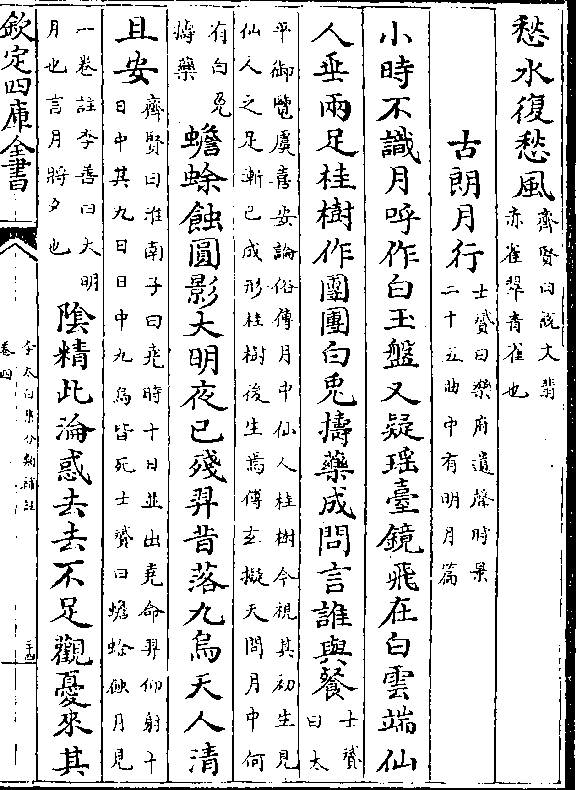 愁水復愁風齊賢曰說文翡
赤雀翠青雀也
古朗月行士贇曰樂府遺聲時景
二十五曲中有明月篇
小時不識月呼作白玉盤又疑瑶臺鏡飛在白雲端仙
人垂兩足桂樹作團團白兎擣藥成問言誰與餐士贇
曰太
平御覽虞喜安論俗傳月中仙人桂樹今視其初生見
仙人之足漸已成形桂樹後生焉傅玄擬天問月中何
有白兎
擣藥
蟾蜍蝕圓影大明夜已殘羿昔落九烏天人清
且安齊賢曰淮南子曰堯時十日並出堯命羿仰射十
日中其九日日中九烏皆死士贇曰蟾蜍蝕月見
一卷註李善曰大明
月也言月將夕也
陰精此淪惑去去不足觀憂來其
欽定四庫全書
李太白集分類補註
卷四